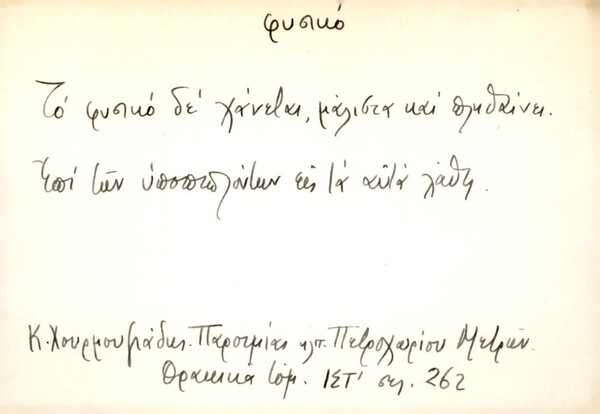 φυσικό
Τό φυσικό δέ χάνεται, μάλιστα καί πληθαίνει.
Ἐπί τῶν ὑποπιπτόντων εἰς τά αὐτά λάθη.
Κ. Χουρμουζιάδης. Παροιμίαι κλπ. Πετροχωρίου Μετρῶν.
Θρακικά τόμ. ΙΣΤ' σελ. 262